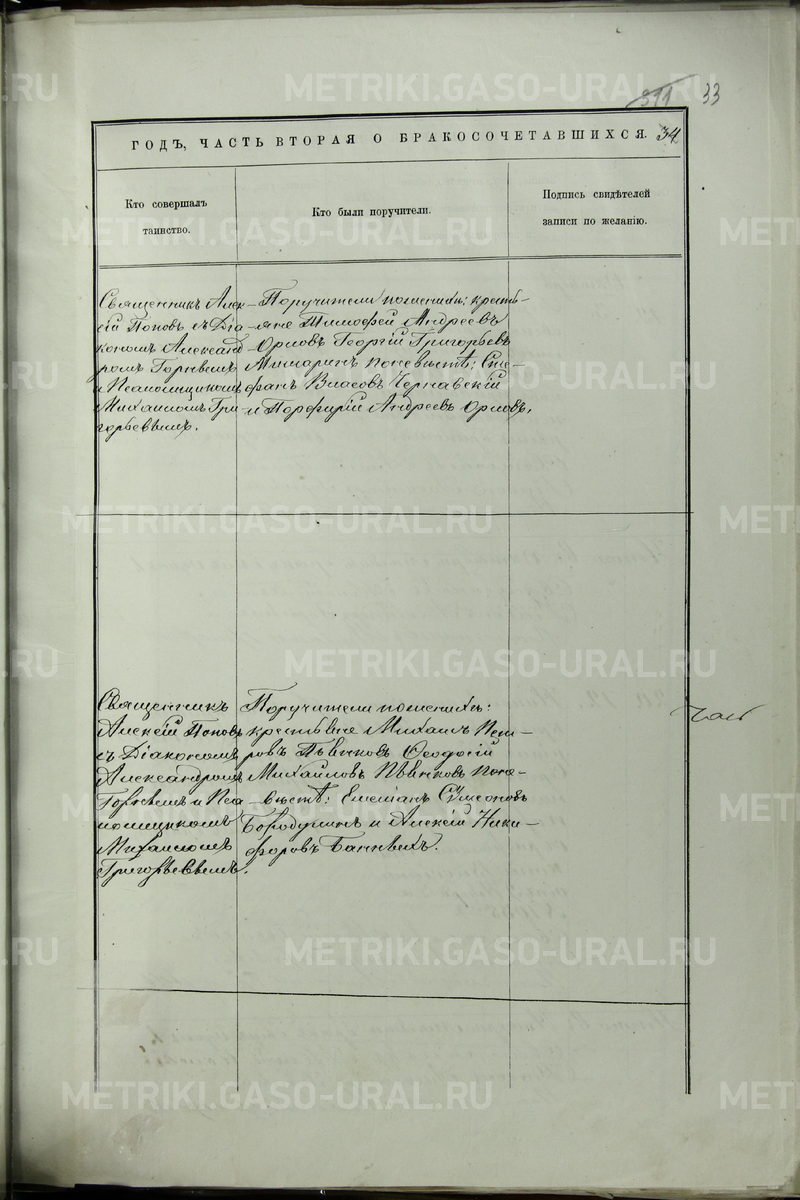 33
ГОДЪ, ЧАСТЬ ВТОРАЯ О БРАКОСОЧЕТАВШИХСЯ. 34
Кто совершалъ
таинство.
Кто были поручители.
Подпись свидѣтелей
записи по желанію.
Священникъ Алек-
сій Поповъ съ Діа-
кономъ Александ-
ромъ
и Псаломщикомъ
Михаиломъ Гри-
горьевымъ.
Поручители по женихѣ: кресть-
яне Тимофей Андреевъ
Орловъ Георгій Григорьевъ
по невѣстѣ: Сте-
фанъ Власовъ Чернавскій
и Порфирій Андреевъ Орловъ.
Священникъ
Алексій Поповъ
съ Діакономъ
Александромъ
и Пса-
ломщикомъ
Михаиломъ
Григорьевымъ.
Поручители по женихѣ:
крестьяне Михаилъ Пет-
ровъ Пьянковъ Феодосій
Михайловъ Пьянковъ по не-
вѣстѣ: Емеліанъ Симеоновъ
Бородулинъ и Алексій Ники-
форовъ Банныхъ.
METRIKI.GASO-URAL.RU